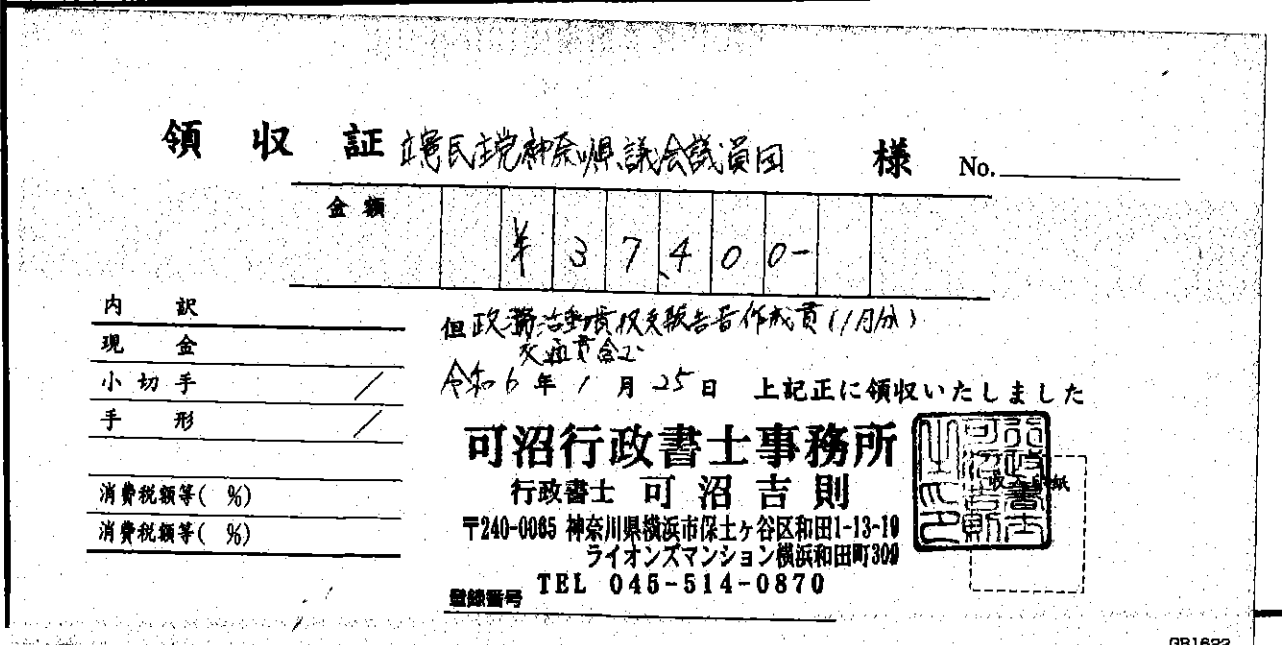 領収証 立憲民主党神奈川県議会議員団 様 No.
金額 ¥37,400-
内訳
現金
小切手 /
手形 /
消費税額等( %)
消費税額等( %)
但政務活動費収支報告書作成費(1月分)
交通費含む
令和6年1月25日 上記正に領収いたしました
可沼行政書士事務所
行政書士 可沼吉則
〒240-0065 神奈川県横浜市保土ヶ谷区和田1-13-19
ライオンズマンション横浜和田町309
TEL 045-514-0870
登録番号
収入印紙
行政書士可沼吉則之印
GB1622